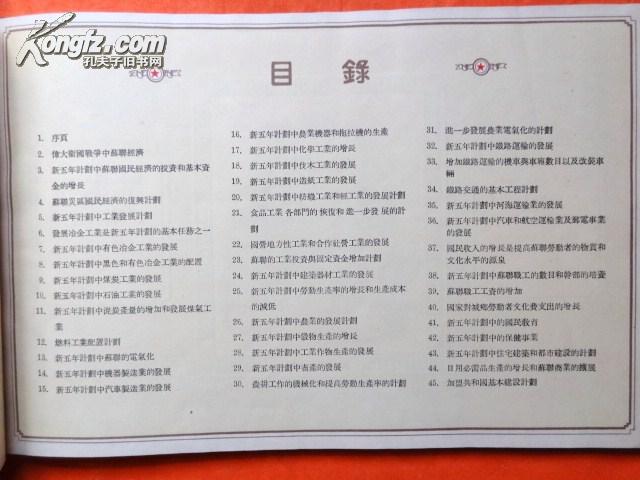 Kongfz.com
孔夫子旧书网
目錄
1. 序頁
2. 偉大衞國戰爭中蘇聯經濟
3. 新五年計劃中蘇聯國民經濟的投資和基本資
金的增長
4. 蘇聯災區國民經濟的復興計劃
5. 新五年計劃中工業發展計劃
6. 發展冶金工業是新五年計劃的基本任務之一
7. 新五年計劃中有色冶金工業的發展
8. 新五年計劃中黑色和有色冶金工業的配置
9. 新五年計劃中煤炭工業的發展
10. 新五年計劃中石油工業的發展
11. 新五年計劃中泥炭產量的增加和發展煤氣工
業
12. 燃料工業配置計劃
13. 新五年計劃中蘇聯的電氣化
14. 新五年計劃中機器製造業的發展
15. 新五年計劃中汽車製造業的發展
16. 新五年計劃中農業機器和拖拉機的生產
17. 新五年計劃中化學工業的增長
18. 新五年計劃中伐木工業的發展
19. 新五年計劃中造紙工業的發展
20. 新五年計劃中紡織工業和輕工業的發展計劃
21. 食品工業各部門的恢復和進一步發展的計
劃
22. 國營地方性工業和合作社營工業的發展
23. 蘇聯的工業投資與固定資金增加計劃
24. 新五年計劃中建築器材工業的發展
25. 新五年計劃中勞動生產率的增長和生產成本
的減低
26. 新五年計劃中農業的發展計劃
27. 新五年計劃中穀物生產的增長
28. 新五年計劃中工業作物生產的發展
29. 新五年計劃中畜產的發展
30. 農耕工作的機械化和提高勞動生產率的計劃
31. 進一步發展農業電氣化的計劃
32. 新五年計劃中鐵路運輸的發展
33. 增加鐵路運輸的機車與車廂數目以及改裝車
輛
34. 鐵路交通的基本工程計劃
35. 新五年計劃中河海運輸業的發展
36. 新五年計劃中汽車和航空運輸業及郵電事業
的發展
37. 國民收入的增長是提高蘇聯勞動者的物質和
文化水平的源泉
38. 新五年計劃中蘇聯職工的數目和幹部的培養
39. 蘇聯職工工資的增加
40. 國家對城鄉勞動者文化費支出的增長
41. 新五年計劃中的國民教育
42. 新五年計劃中的保健事業
43. 新五年計劃中住宅建築和都市建設的計劃
44. 日用必需品生產的增長和蘇聯商業的擴展
45. 加盟共和國基本建設計劃